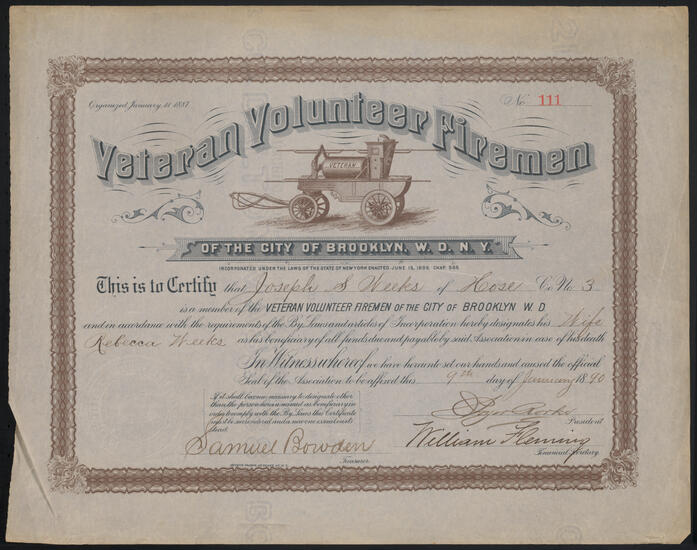 Organized January 11 1887.
No. 111
Veteran Volunteer Firemen
VETERAN
OF THE CITY OF BROOKLYN, W. D. N. Y.
INCORPORATED UNDER THE LAWS OF THE STATE OF NEW YORK ENACTED JUNE 15, 1886. CHAP.
This is to Certify that Joseph S Weeks of Hose Co. No 3
is a member of the VETERAN VOLUNTEER FIREMEN OF THE CITY OF BROOKLYN W. D
and in accordance with the requirements of the By Laws and articles of Incorporation hereby designates his Wife
Rebecca Weeks as his beneficiary of all funds due and payable by said Association in case of his death
In Witness whereof we have hereunto set our hands and caused the official
Seal of the Association to be affixed this 9th day of January 1890
If it shall become necessary to designate other
than the person herein named as beneficiary in
order to comply with the By Laws this Certificate
must be surrendered and a new one executed
President
Samuel Bowden
Treasurer.
William Fleming
Financial Secretary.